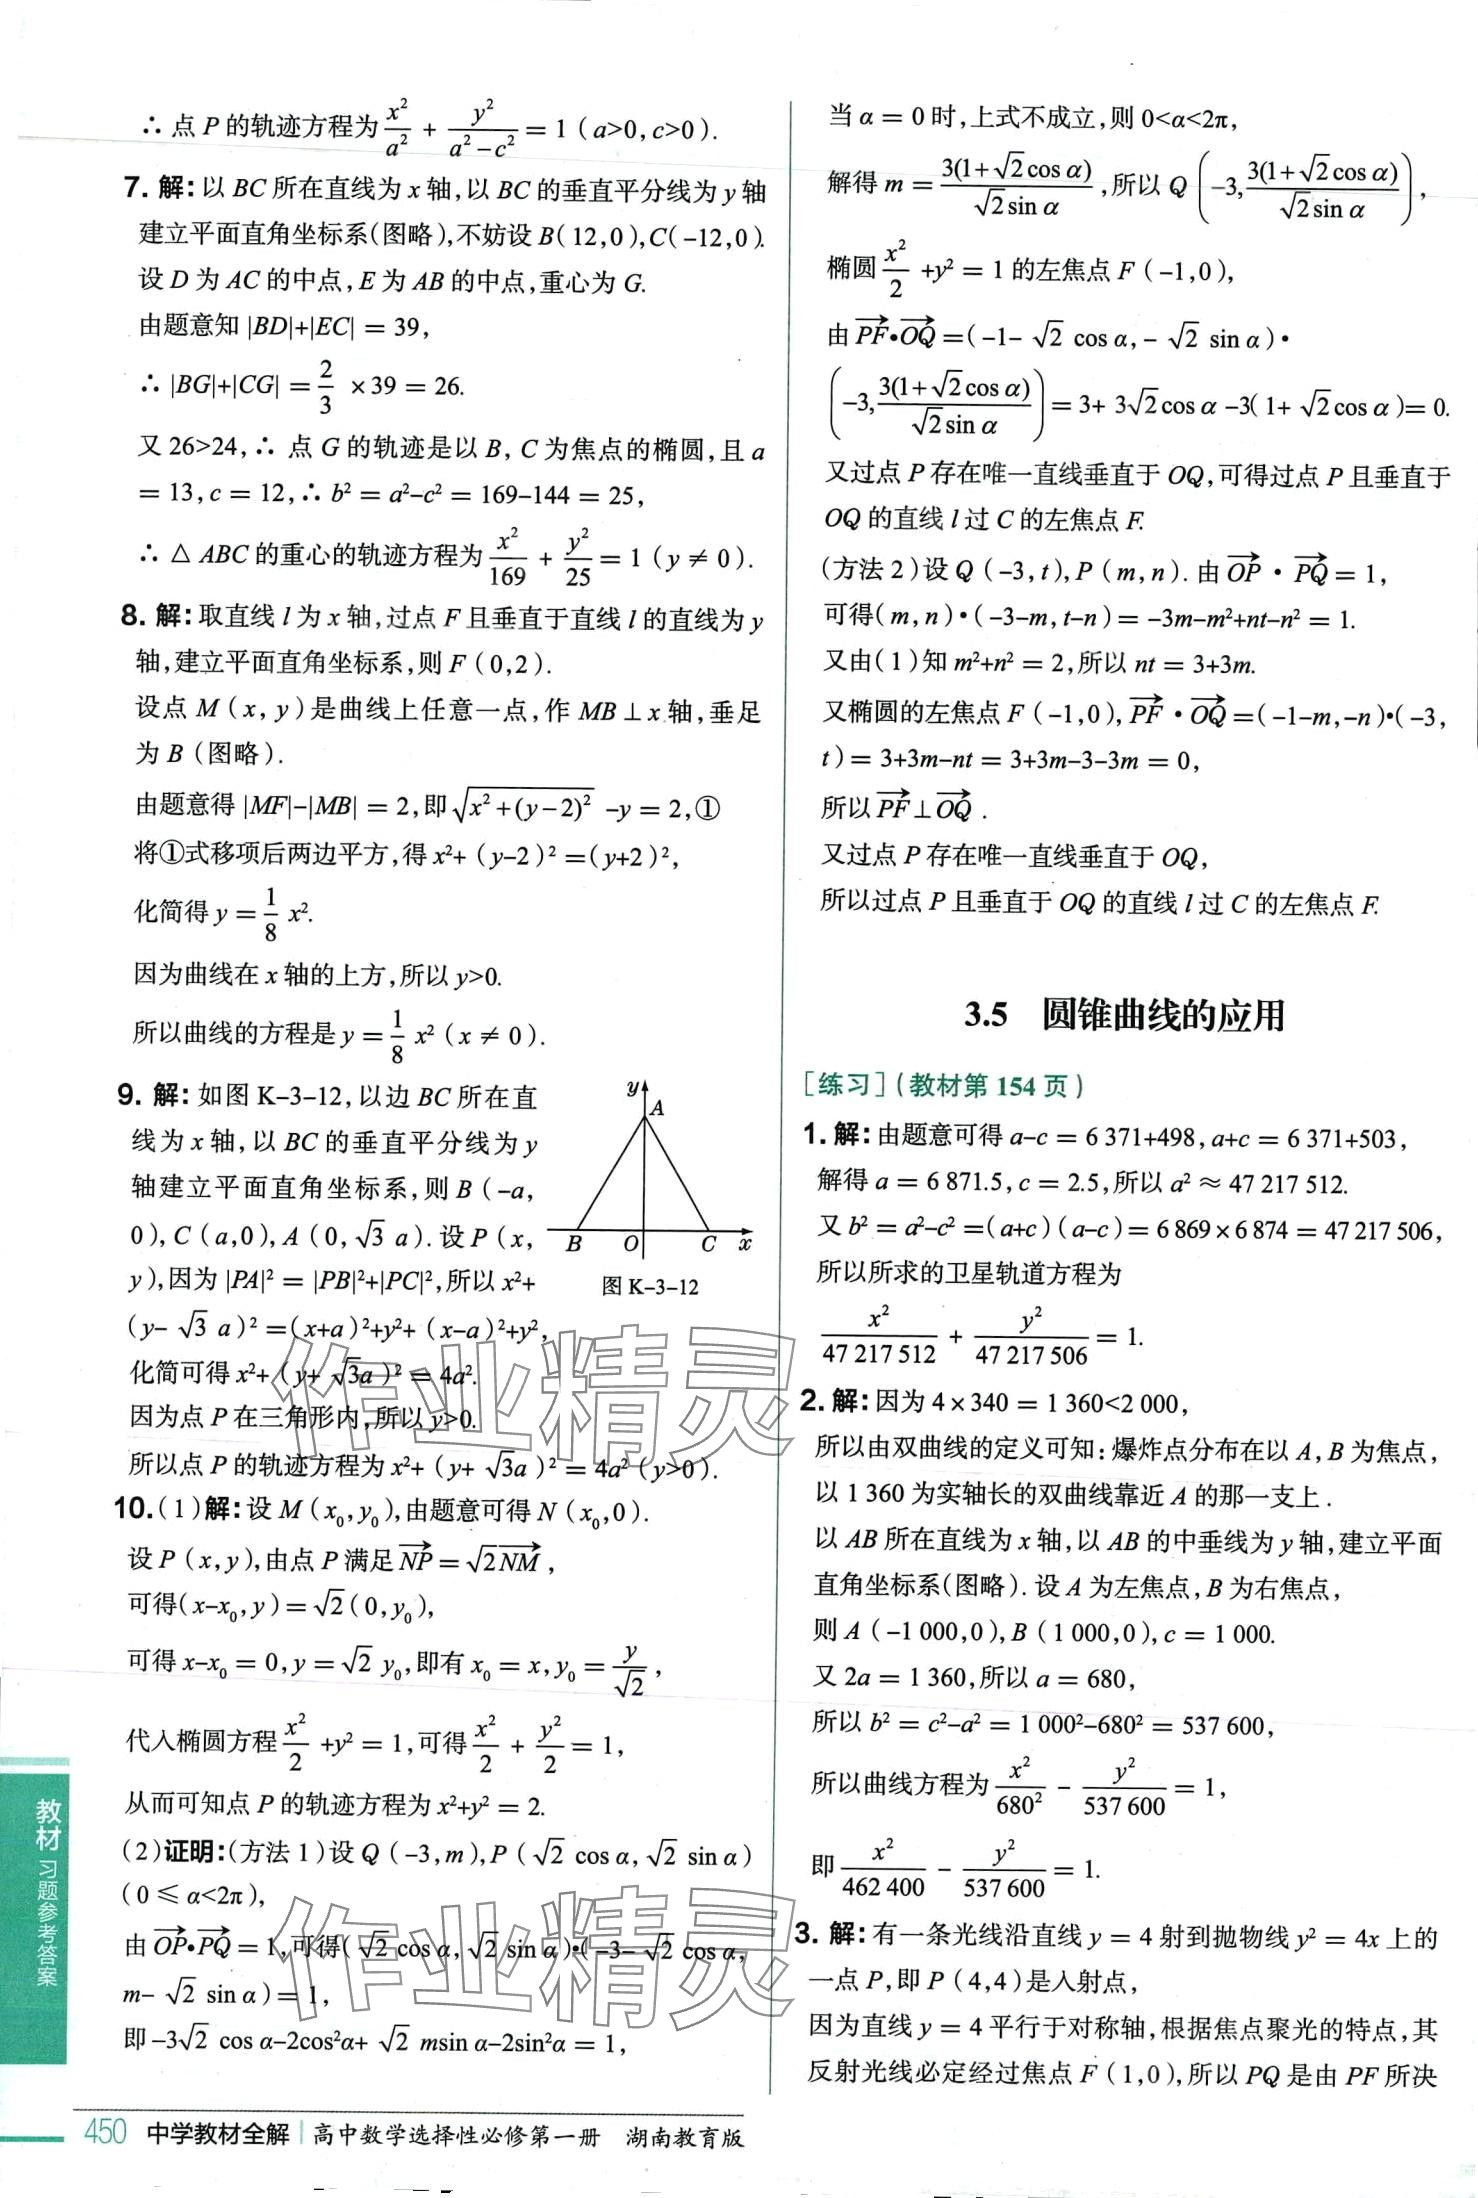 ∴ 点 P 的轨迹方程为 x²/a² + y²/(a²-c²) = 1 (a>0, c>0).
7. 解: 以 BC 所在直线为 x 轴, 以 BC 的垂直平分线为 y 轴
建立平面直角坐标系(图略), 不妨设 B(12,0), C(-12,0).
设 D 为 AC 的中点, E 为 AB 的中点, 重心为 G.
由题意知 |BD|+|EC| = 39,
∴ |BG|+|CG| = 2/3 ×39 = 26.
又 26>24, ∴ 点 G 的轨迹是以 B, C 为焦点的椭圆, 且 a
= 13, c = 12, ∴ b² = a²-c² = 169-144 = 25,
∴ △ABC 的重心的轨迹方程为 x²/169 + y²/25 = 1 (y ≠ 0).
8. 解: 取直线 l 为 x 轴, 过点 F 且垂直于直线 l 的直线为 y
轴, 建立平面直角坐标系, 则 F (0,2).
设点 M (x, y) 是曲线上任意一点, 作 MB⊥x 轴, 垂足
为 B (图略).
由题意得 |MF|-|MB| = 2, 即 √(x²+(y-2)²) -y = 2, ①
将①式移项后两边平方, 得 x²+ (y-2)² =(y+2)²,
化简得 y = 1/8 x².
因为曲线在 x 轴的上方, 所以 y>0.
所以曲线的方程是 y = 1/8 x² (x ≠ 0).
9. 解: 如图 K-3-12, 以边 BC 所在直
线为 x 轴, 以 BC 的垂直平分线为 y
轴建立平面直角坐标系, 则 B (-a,
0), C (a,0), A (0, √3 a). 设 P (x,
y), 因为 |PA|² = |PB|²+|PC|², 所以 x²+
(y- √3 a)² =(x+a)²+y²+ (x-a)²+y²,
化简可得 x²+ (y+ √3a)² = 4a².
因为点 P 在三角形内, 所以 y>0.
所以点 P 的轨迹方程为 x²+ (y+ √3a)² = 4a² (y>0).
y
A
B O C x
图 K-3-12
10. (1) 解: 设 M (x₀, y₀), 由题意可得 N (x₀,0).
设 P (x, y), 由点 P 满足 NP→ = √2 NM→,
可得(x-x₀, y) = √2 (0, y₀),
可得 x-x₀ = 0, y = √2 y₀, 即有 x₀ = x, y₀ = y/√2,
代入椭圆方程 x²/2 +y² = 1, 可得 x²/2 + y²/2 = 1,
从而可知点 P 的轨迹方程为 x²+y² = 2.
(2) 证明: (方法 1) 设 Q (-3, m), P (√2 cos α, √2 sin α)
(0 ≤ α<2π),
由 OP→·PQ→ = 1, 可得( √2 cos α, √2 sin α)·( -3- √2 cos α,
m- √2 sin α) = 1,
即 -3√2 cos α-2cos²α+ √2 msin α-2sin²α = 1,
当 α = 0 时, 上式不成立, 则 0<α<2π,
解得 m = 3(1+√2cos α)/(√2sin α), 所以 Q (-3, 3(1+√2cos α)/(√2sin α)),
椭圆 x²/2 +y² = 1 的左焦点 F (-1,0),
由 PF→·OQ→ =(-1- √2 cos α, - √2 sin α)·
(-3, 3(1+√2cos α)/(√2sin α)) = 3+ 3√2cos α -3( 1+ √2cos α)= 0.
又过点 P 存在唯一直线垂直于 OQ, 可得过点 P 且垂直于
OQ 的直线 l 过 C 的左焦点 F.
(方法 2) 设 Q (-3, t), P (m, n). 由 OP→ · PQ→ = 1,
可得(m, n)·(-3-m, t-n) = -3m-m²+nt-n² = 1.
又由(1)知 m²+n² = 2, 所以 nt = 3+3m.
又椭圆的左焦点 F (-1,0), PF→ · OQ→ =(-1-m,-n)·(-3,
t) = 3+3m-nt = 3+3m-3-3m = 0,
所以 PF→⊥OQ→.
又过点 P 存在唯一直线垂直于 OQ,
所以过点 P 且垂直于 OQ 的直线 l 过 C 的左焦点 F.
3.5 圆锥曲线的应用
[练习] (教材第 154 页)
1. 解: 由题意可得 a-c = 6 371+498, a+c = 6 371+503,
解得 a = 6 871.5, c = 2.5, 所以 a² ≈ 47 217 512.
又 b² = a²-c² =(a+c)(a-c) = 6 869×6 874 = 47 217 506,
所以所求的卫星轨道方程为
x²/47 217 512 + y²/47 217 506 = 1.
2. 解: 因为 4×340 = 1 360<2 000,
所以由双曲线的定义可知: 爆炸点分布在以 A, B 为焦点,
以 1 360 为实轴长的双曲线靠近 A 的那一支上.
以 AB 所在直线为 x 轴, 以 AB 的中垂线为 y 轴, 建立平面
直角坐标系(图略). 设 A 为左焦点, B 为右焦点,
则 A (-1 000,0), B (1 000,0), c = 1 000.
又 2a = 1 360, 所以 a = 680,
所以 b² = c²-a² = 1 000²-680² = 537 600,
所以曲线方程为 x²/680² - y²/537 600 = 1,
即 x²/462 400 - y²/537 600 = 1.
3. 解: 有一条光线沿直线 y = 4 射到抛物线 y² = 4x 上的
一点 P, 即 P (4,4) 是入射点,
因为直线 y = 4 平行于对称轴, 根据焦点聚光的特点, 其
反射光线必定经过焦点 F (1,0), 所以 PQ 是由 PF 所决
教材 习题参考答案
450 中学教材全解 | 高中数学选择性必修第一册 湖南教育版
作业精灵
作业精灵